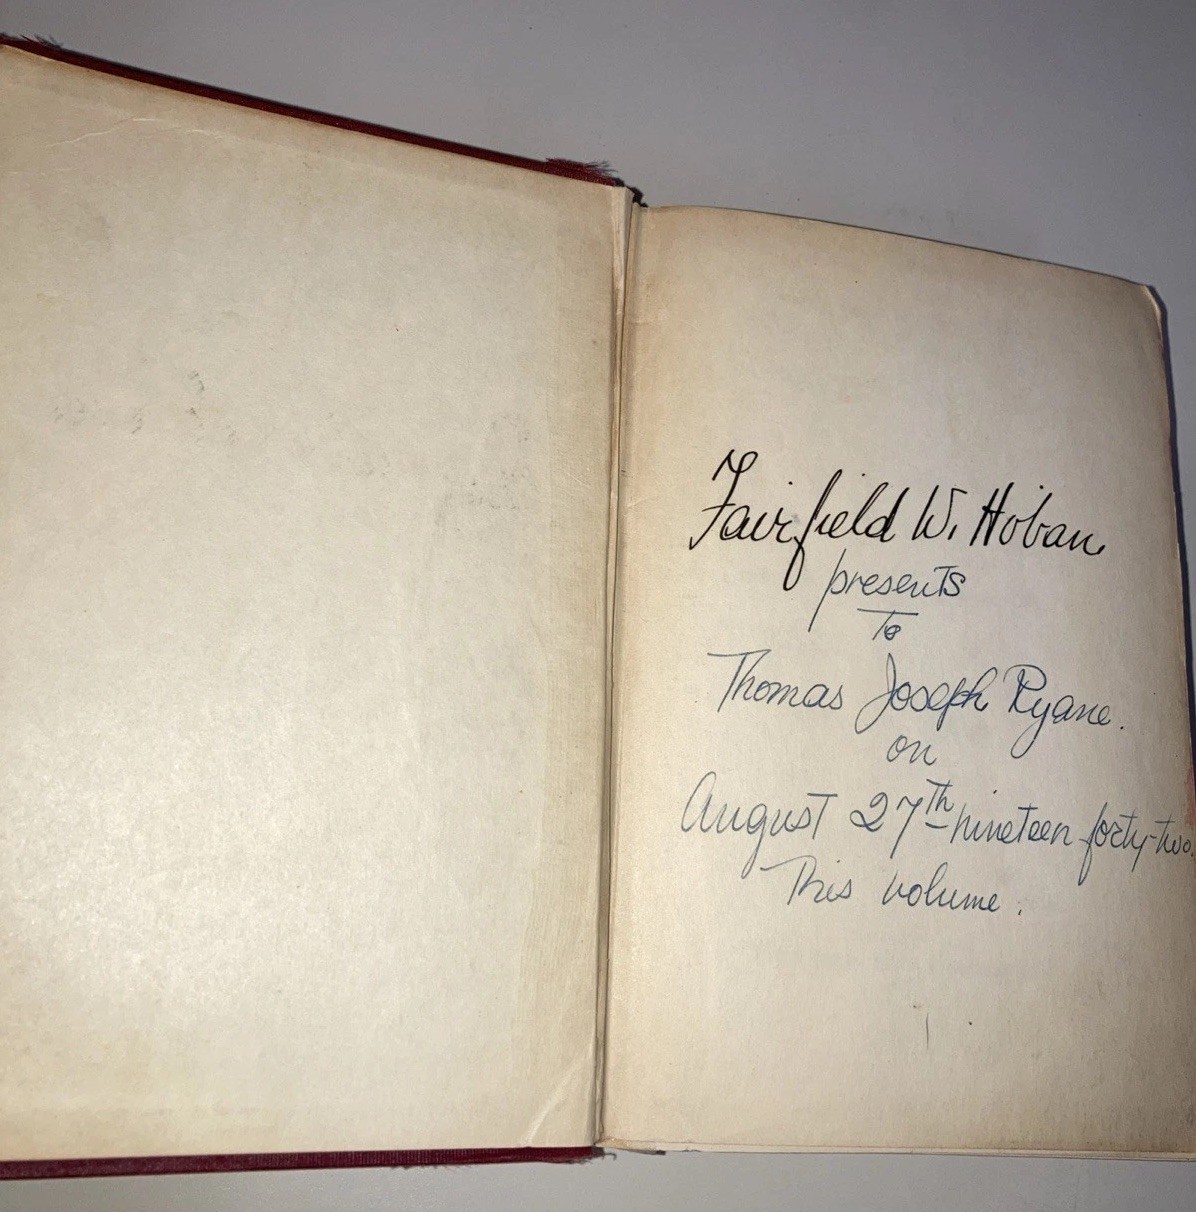 Fairfield W. Hoban
presents
To
Thomas Joseph Ryane.
on
August 27th nineteen forty-two.
This volume.